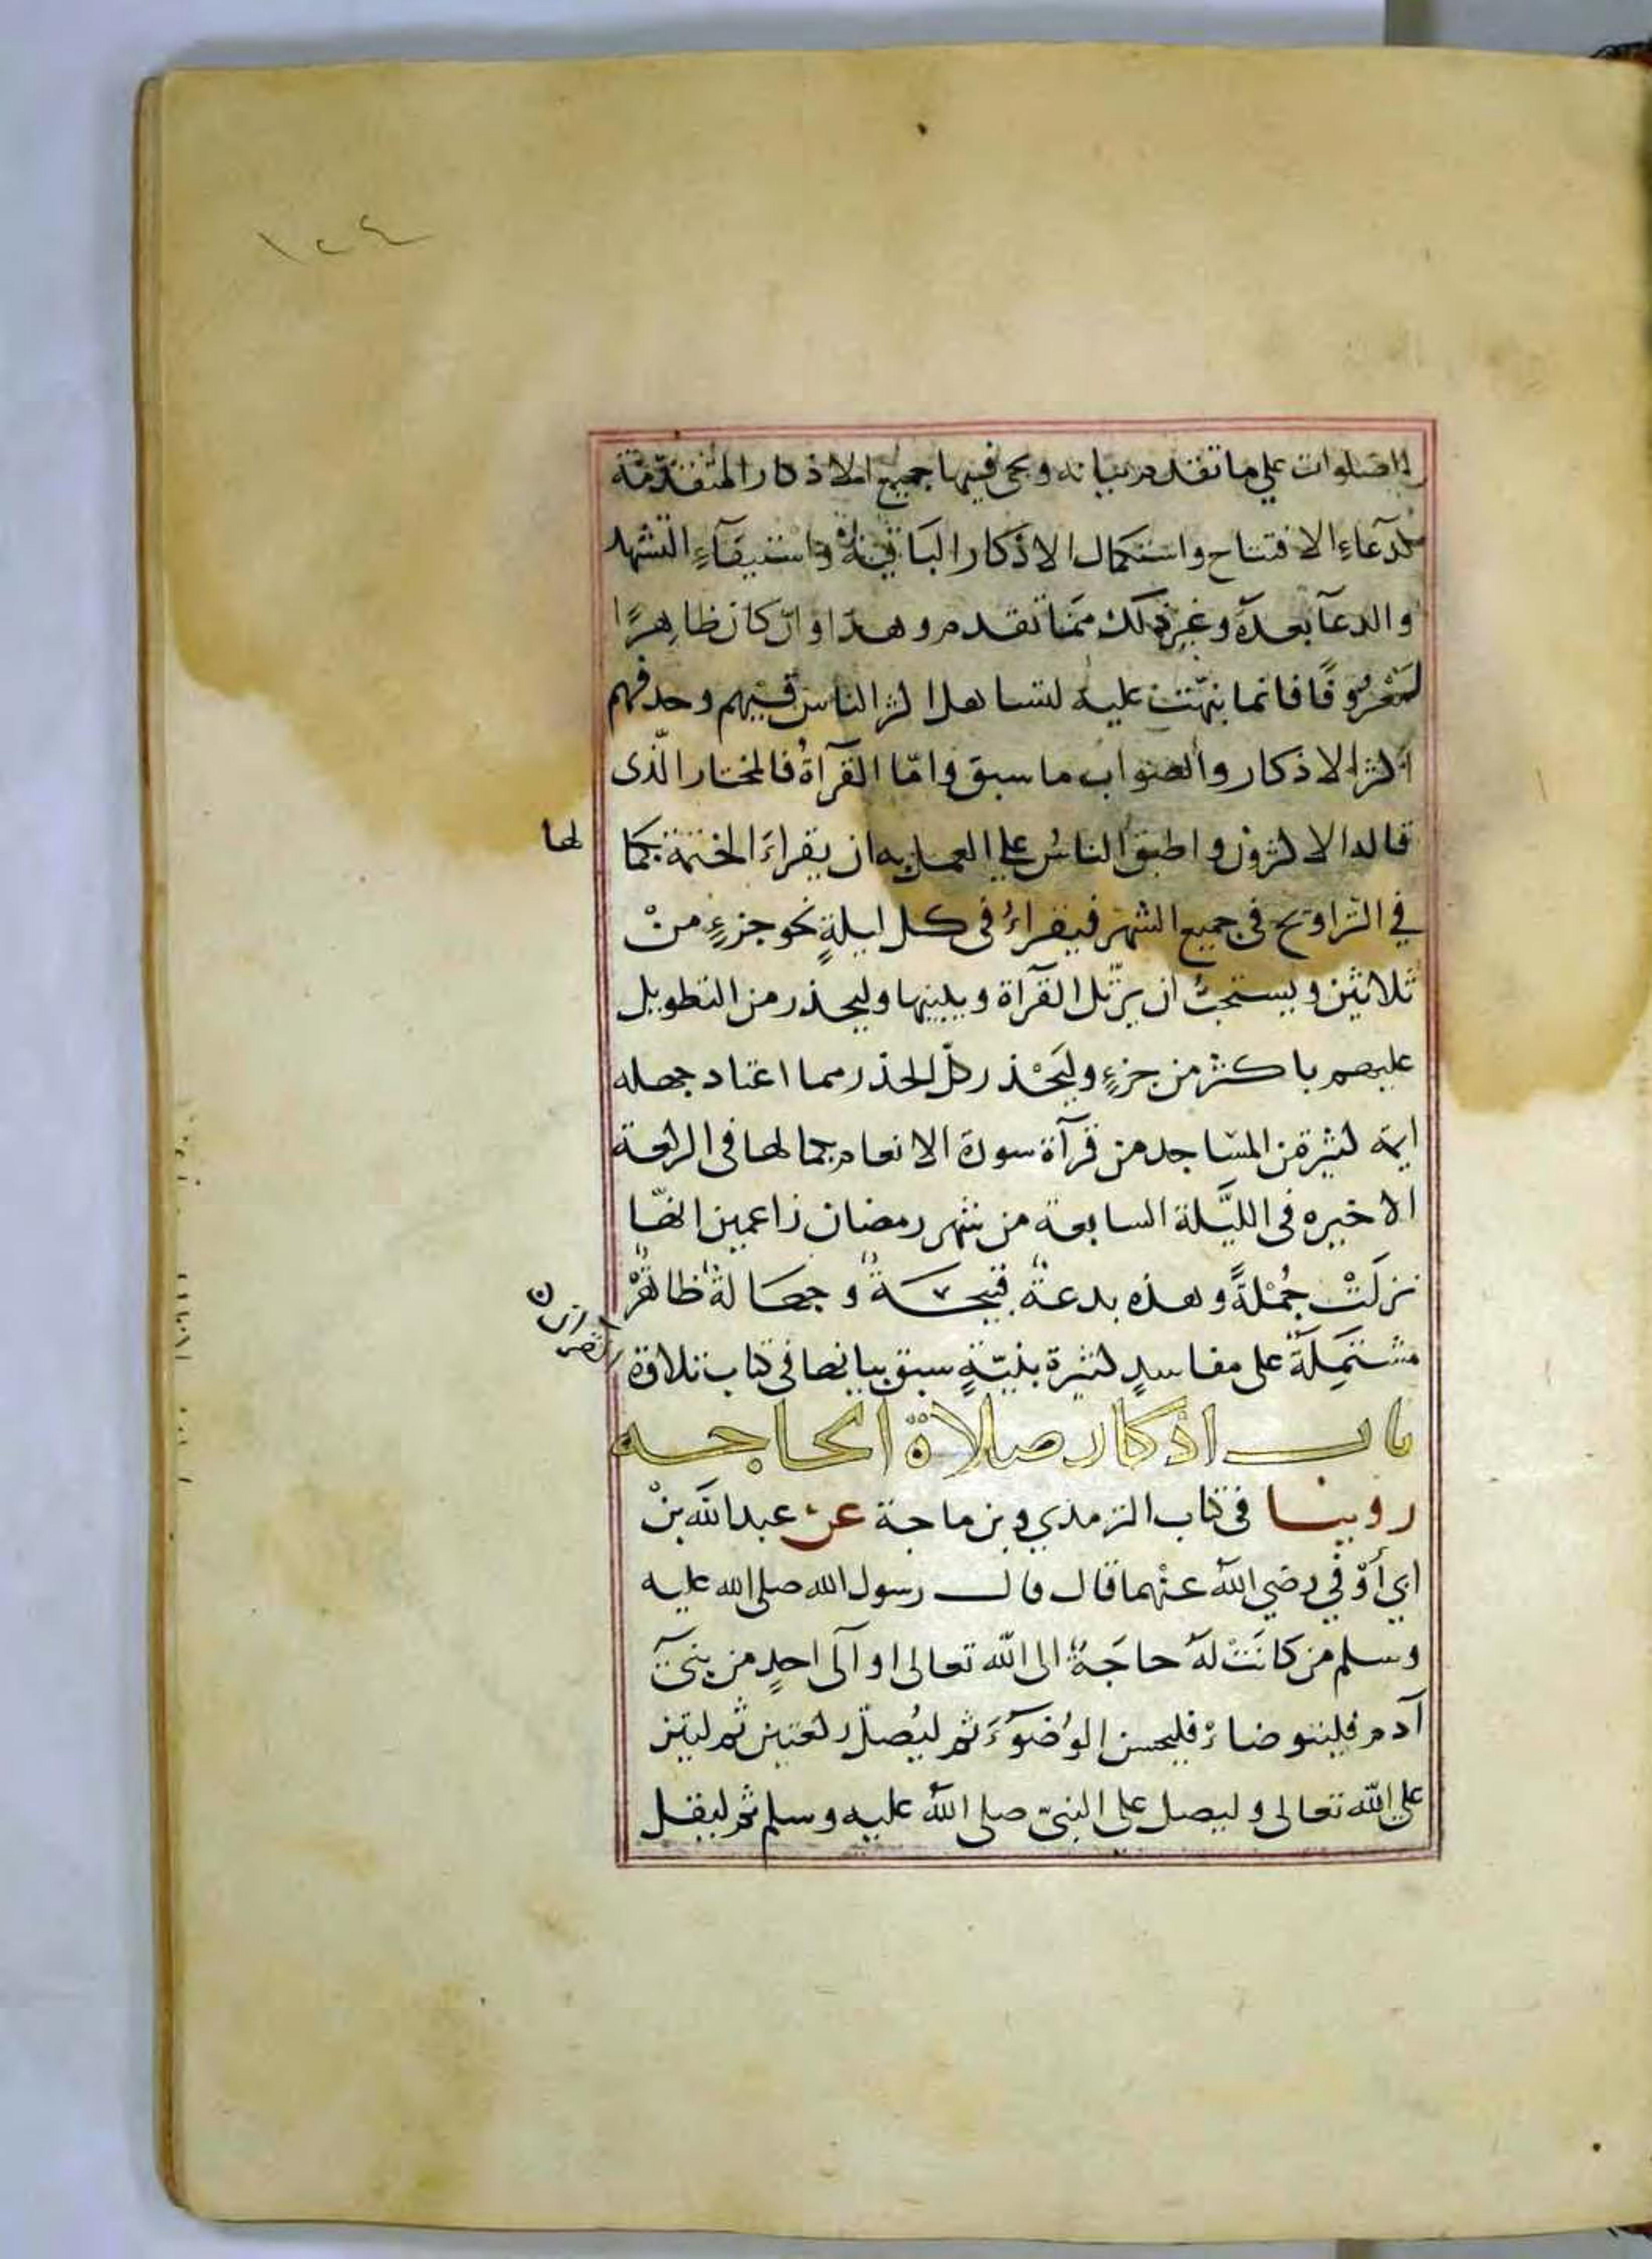 ١٢٤
الصلوات على ما تقدم بيانه ويجئ فيها جميع الاذكار المتقدمة
كدعآء الافتتاح واستكمال الاذكار الباقية واستيفآء التشهد
والدعآ بعده وغير ذلك ممّا تقدم وهذا وان كان ظاهرًا
معروفًا فانما نبّهت عليه لتساهل اكثر الناس فيهم وحذفهم
اكثر الاذكار والصواب ما سبق وامّا القرآة فالمختار الّذى
قاله الاكثرون واطبق الناسُ على العمل به ان يقراءَ الختمة بكما لها
في التراويح في جميع الشهر فيقراءُ فى كل ليلةٍ نحو جزءٍ منْ
ثلاثين ويستحبُّ ان يرتّل القرآة ويبينها وليحذر من التطويل
عليهم باكثر من جزءٍ وليَحْذر كلّ الحذر مما اعتاد جهله
ايمة كثيرة من المساجد من قرآة سورة الانعام بجمالها فى الركعة
الاخيره فى الليَّلة السابعة من شهر رمضان زاعمين انهّا
نزلَتْ جُمْلةً وهذه بدعةٌ قبيحَةٌ وجهَالةٌ ظاهرْ
مشتمِلَةٌ على مفاسدٍ كثيرة بنيّنةٍ سبق بيانها فى كتاب تلاوة
القران
باب اذكار صلاة الحاجه
روينا فى كتاب الترمذي وبن ماجة عن عبد الله بنْ
ابي أوْفي رضي اللهُ عنْهما قال قال رسول الله صلى الله عليه
وسلم من كانَتْ لهُ حاجَةٌ الى الله تعالى او آلى احدٍ من بنىٓ
آدم فليتوضاءْ فليحسن الوُضوٓءَ ثم ليُصلّ ركعتين ثم ليثن
على الله تعالى وليصل على النبىّ صلى اللهُ عليه وسلم ثم ليقل